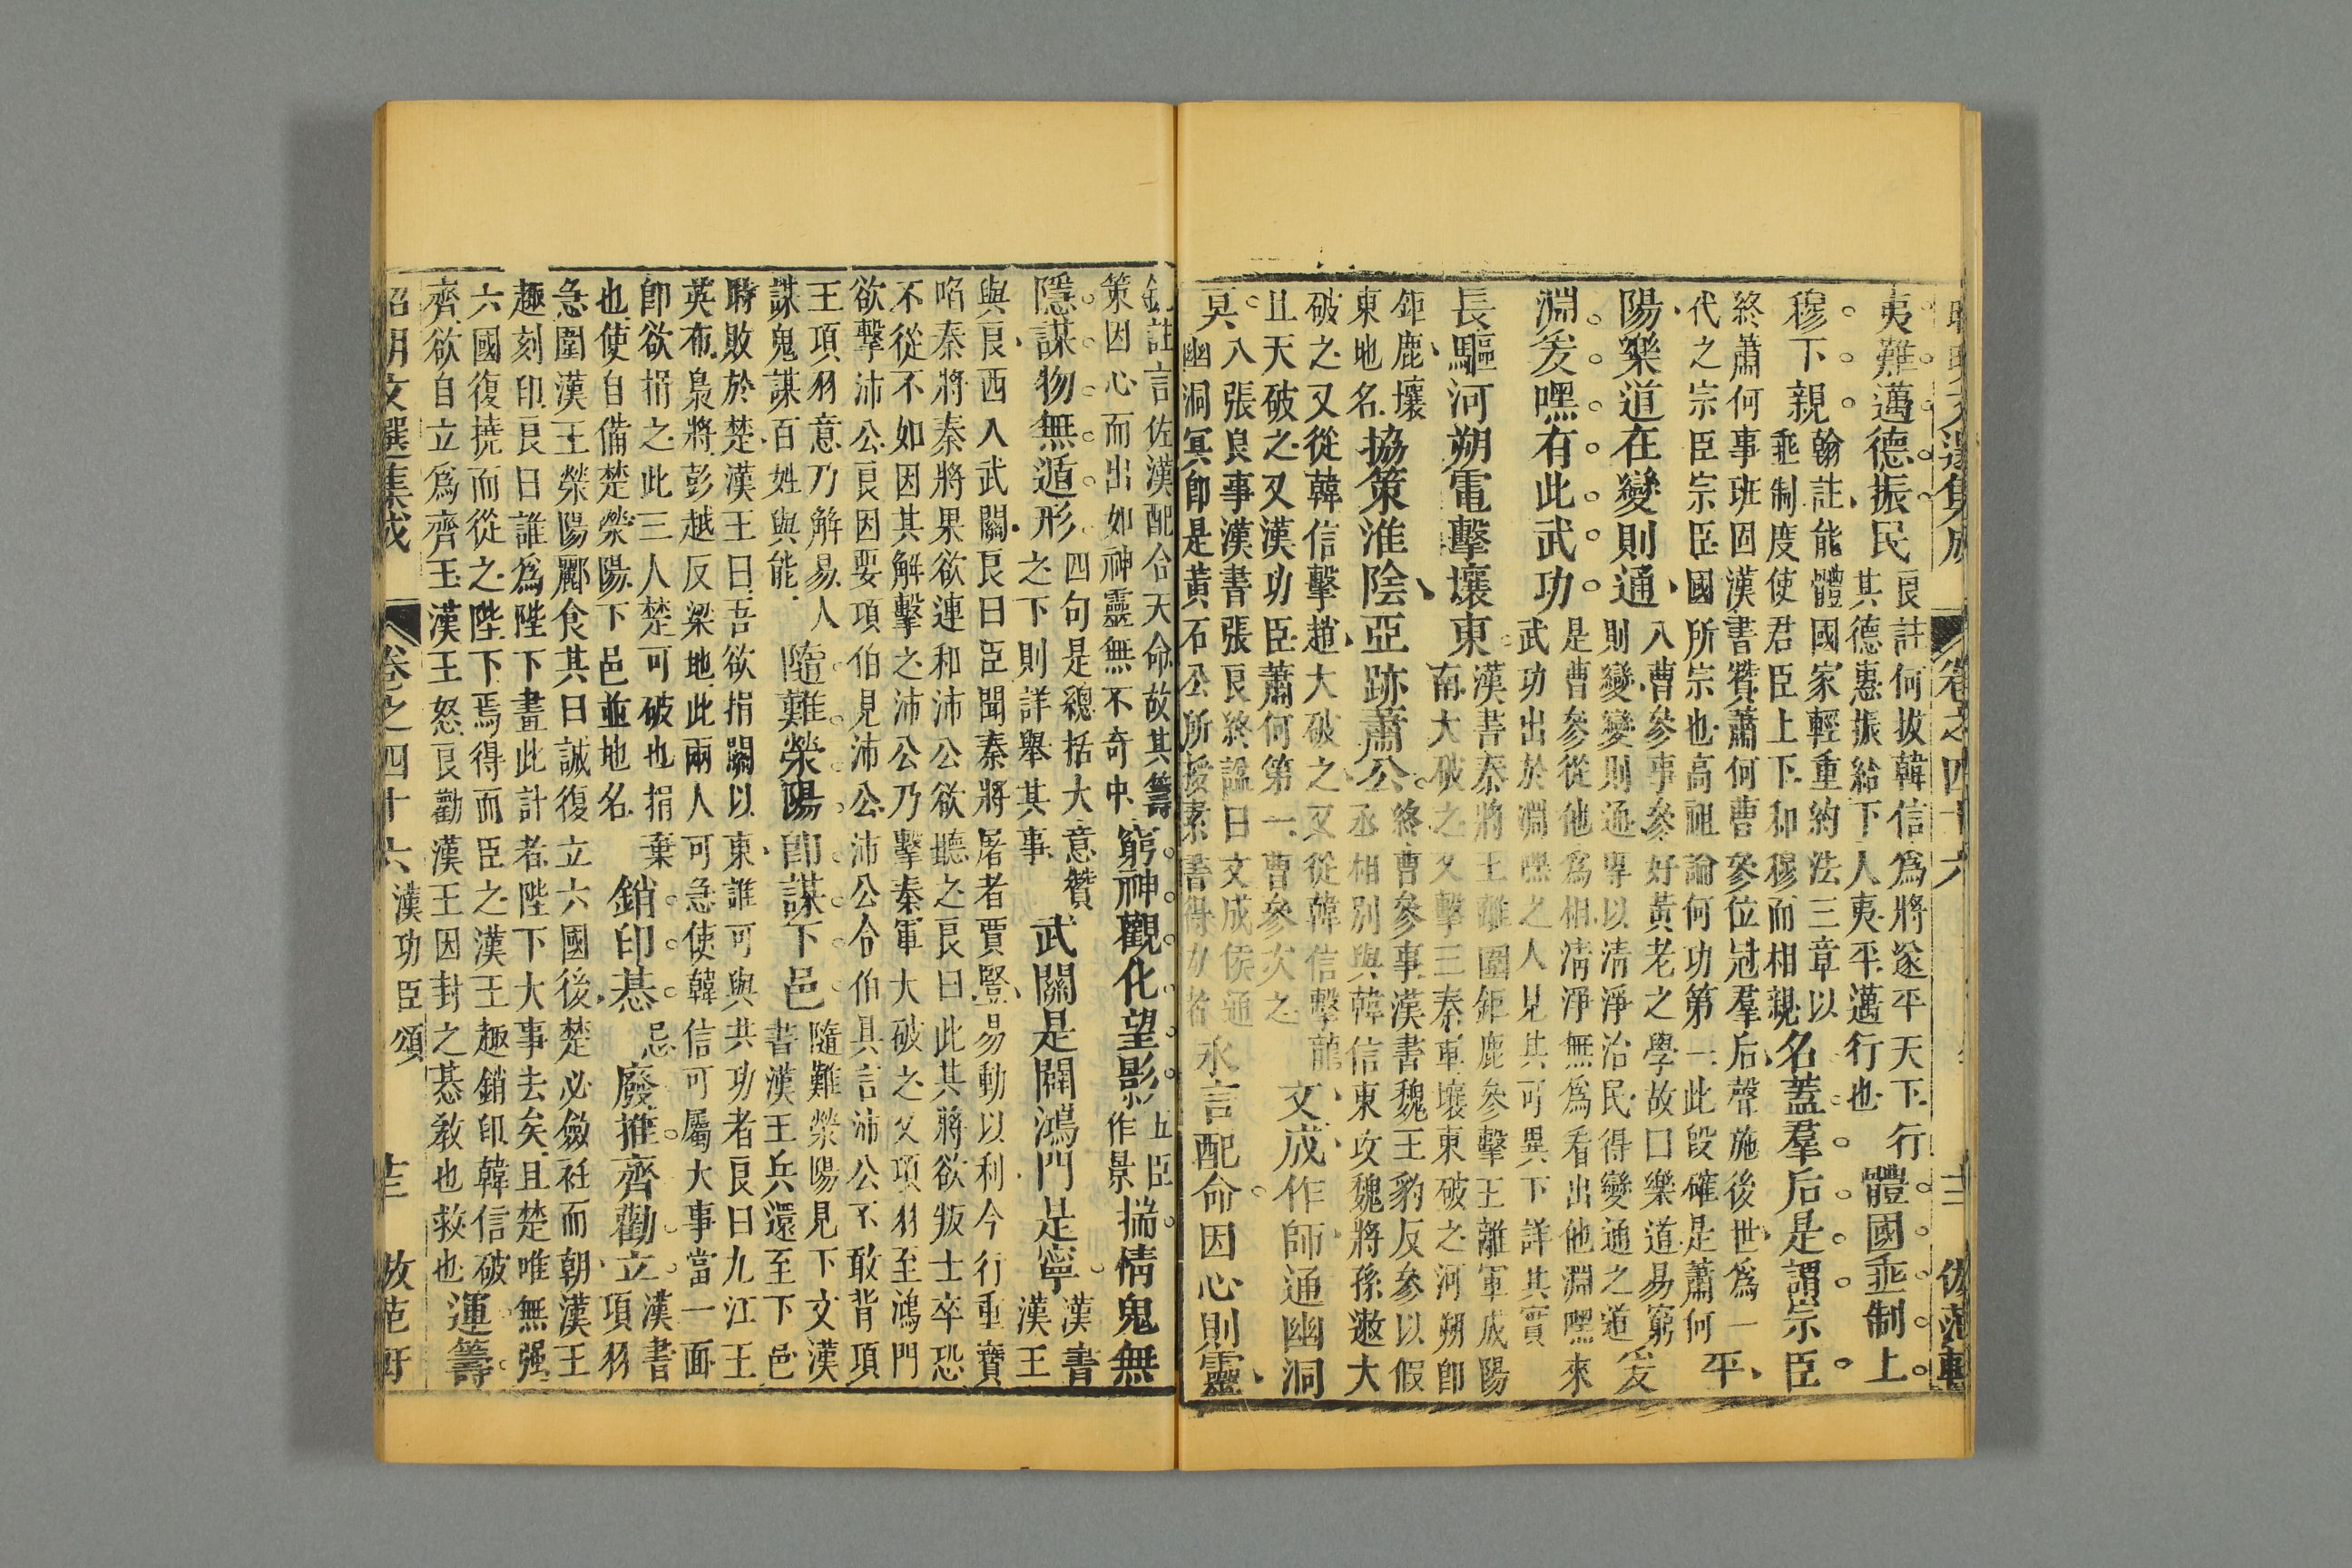 卷之四十六
夷難邁德振民良註何拔韓信爲將遂平天下行
其德惠振給下人夷平邁行也體國垂制上
穆下親翰註能體國家輕重約法三章以
垂制度使君臣上下和穆而相親名蓋羣后是謂宗臣
終蕭何事班固漢書贊蕭何曹參位冠羣后聲施後世爲一
代之宗臣宗臣國所宗也高祖論何功第一此段確是蕭何平
陽樂道在變則通入曹參事參好黃老之學故曰樂道易窮
則變變則通專以清淨治民得變通之道爰
淵爰嘿有此武功是曹參從他爲相清淨無爲看出他淵嘿來
武功出於淵嘿之人見其可異下詳其實
長驅河朔電擊壤東漢書秦將王離圍鉅鹿參擊王離軍成陽
南大破之又擊三秦軍壤東破之河朔卽
鉅鹿壤
東地名協策淮陰亞跡蕭公終曹參事漢書魏王豹反參以假
丞相別與韓信東攻魏將孫遬大
破之又從韓信擊趙大破之又從韓信擊龍
且大破之又漢功臣蕭何第一曹參次之文成作師通幽洞
冥入張良事漢書張良終諡曰文成侯通
幽洞冥卽是黃石公所授素書得力者永言配命因心則靈
註言佐漢配合天命故其籌
策因心而出如神靈無不奇中窮神觀化望影
五臣
作景揣情鬼無
隱謀物無遁形四句是綂括大意贊
之下則詳舉其事武關是闢鴻門是寧漢書
漢王
與良西入武關良曰臣聞秦將屠者賈豎易動以利今行重寶
啗秦將秦將果欲連和沛公欲聽之良曰此其將欲叛士卒恐
不從不如因其解擊之沛公乃擊秦軍大破之又項羽至鴻門
欲擊沛公良因要項伯見沛公沛公合伯具言沛公不敢背項
王項羽意乃解易人
謀鬼謀百姓與能隨難滎陽卽謀下邑隨難滎陽見下文漢
書漢王兵還至下邑
時敗於楚漢王曰吾欲捐關以東誰可與共功者良曰九江王
英布梟將彭越反梁地此兩人可急使韓信可屬大事當一面
卽欲捐之此三人楚可破也捐棄
也使自備楚滎陽下邑並地名銷印惎忌廢推齊勸立漢書
項羽
急圍漢王滎陽酈食其曰誠復立六國後楚必斂衽而朝漢王
趣刻印良曰誰爲陛下畫此計者陛下大事去矣且楚唯無强
六國復撓而從之陛下焉得而臣之漢王趣銷印韓信破
齊欲自立爲齊王漢王怒良勸漢王因封之惎敎也救也運籌
昭明文選集成 卷之四十六 漢功臣頌